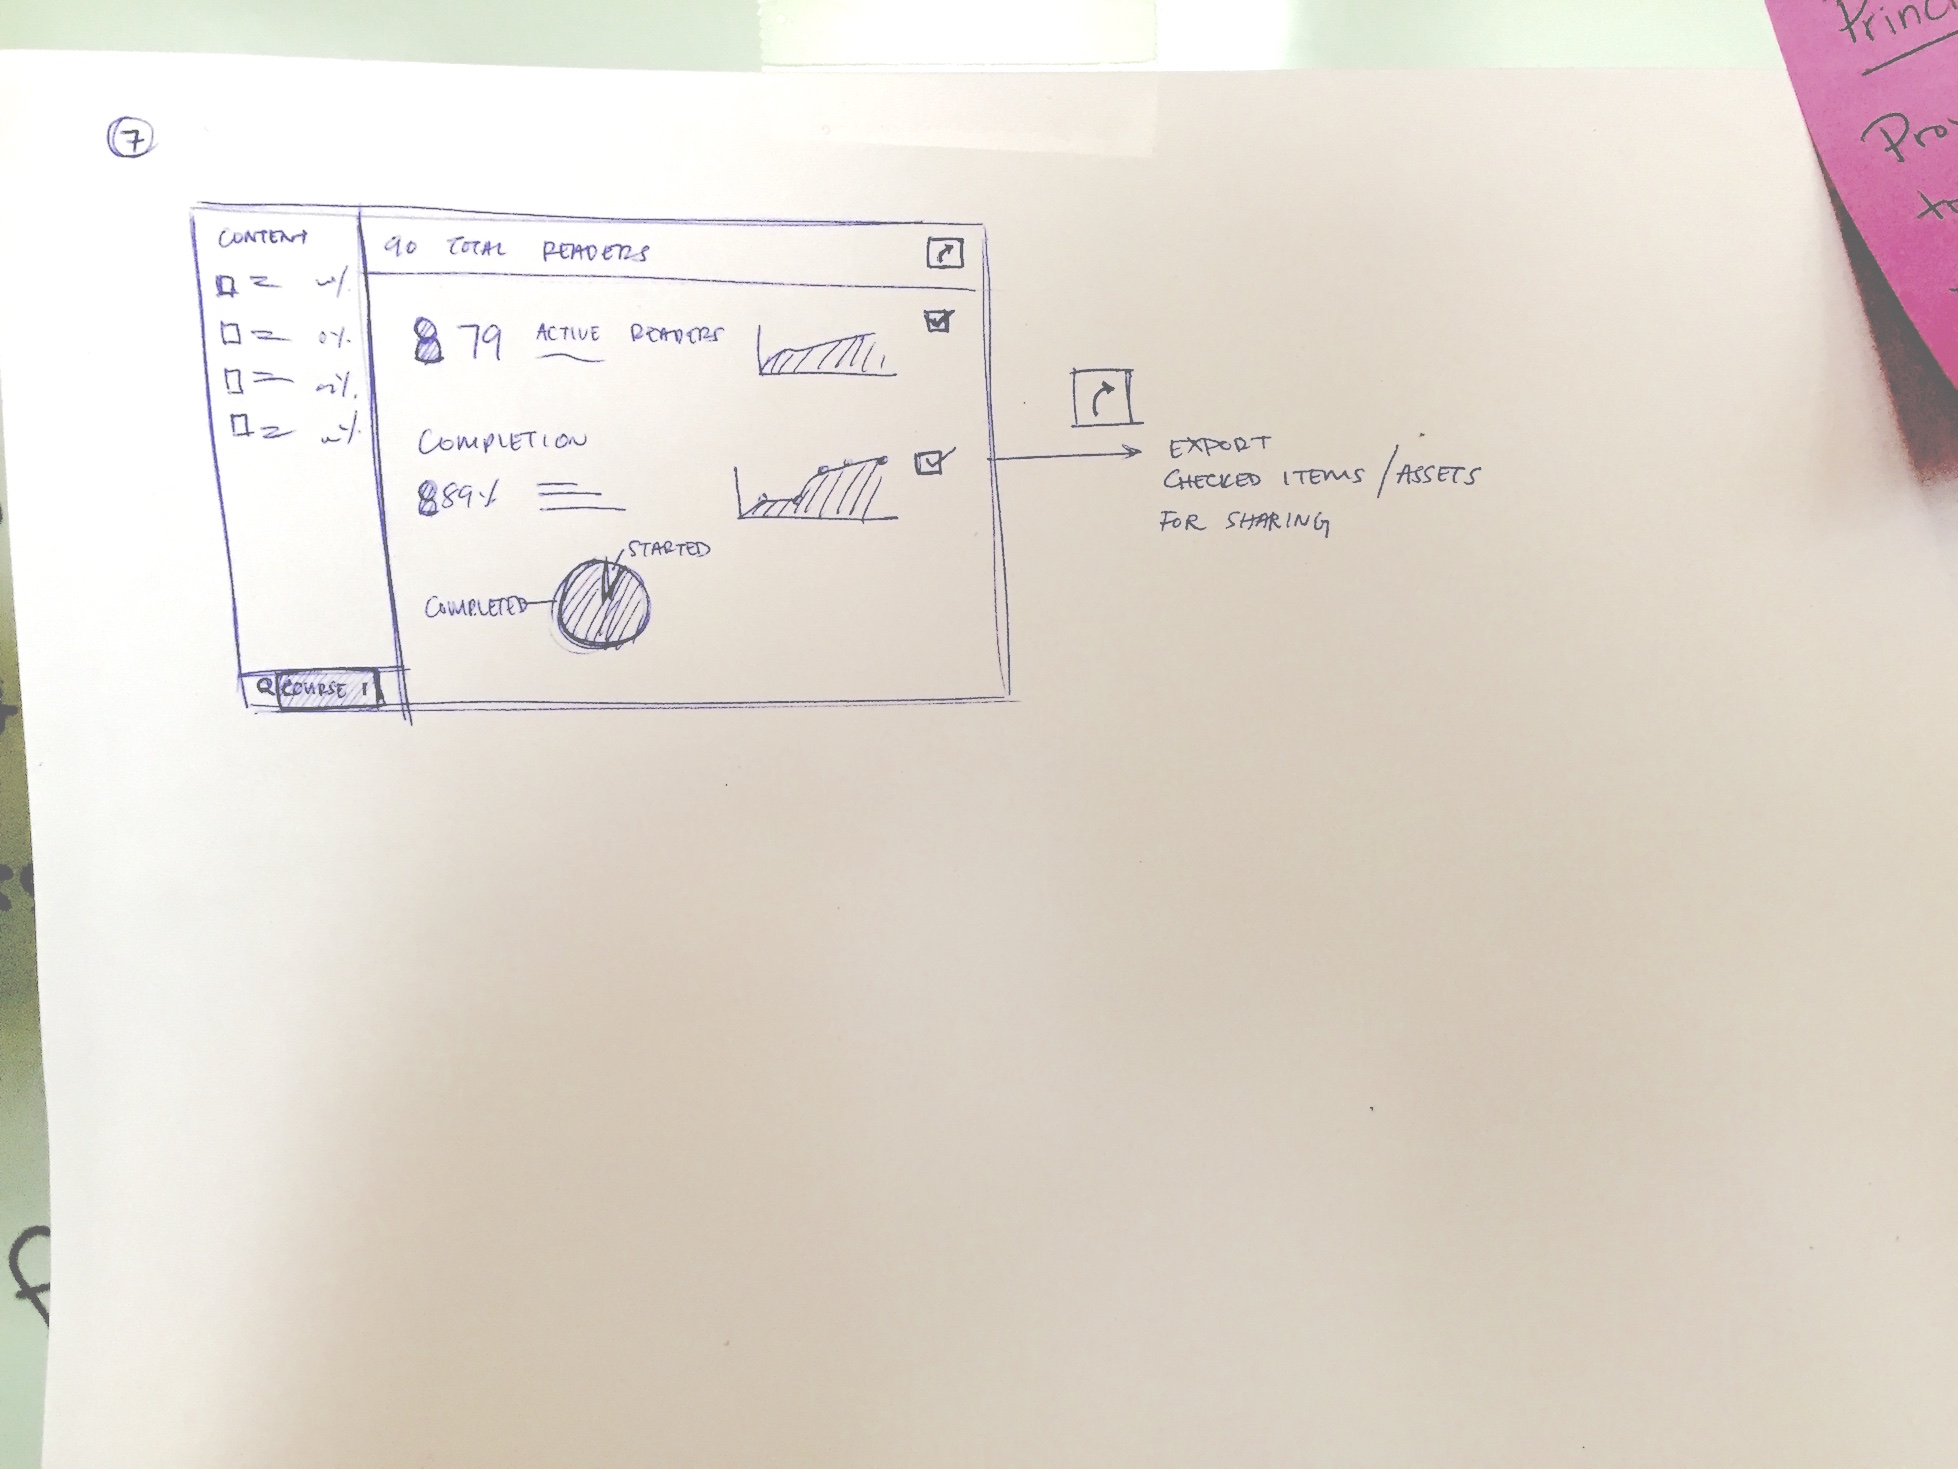 7
CONTENT
90 TOTAL READERS
79 ACTIVE READERS
COMPLETION
89%
STARTED
COMPLETED
COURSE 1
EXPORT
CHECKED ITEMS / ASSETS
FOR SHARING